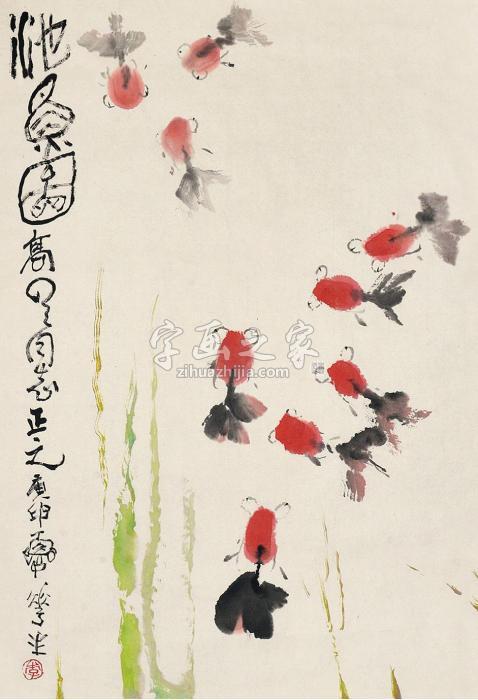 池魚圖 高 同志正之 庚 華生
字画之家
zihuazhijia.com